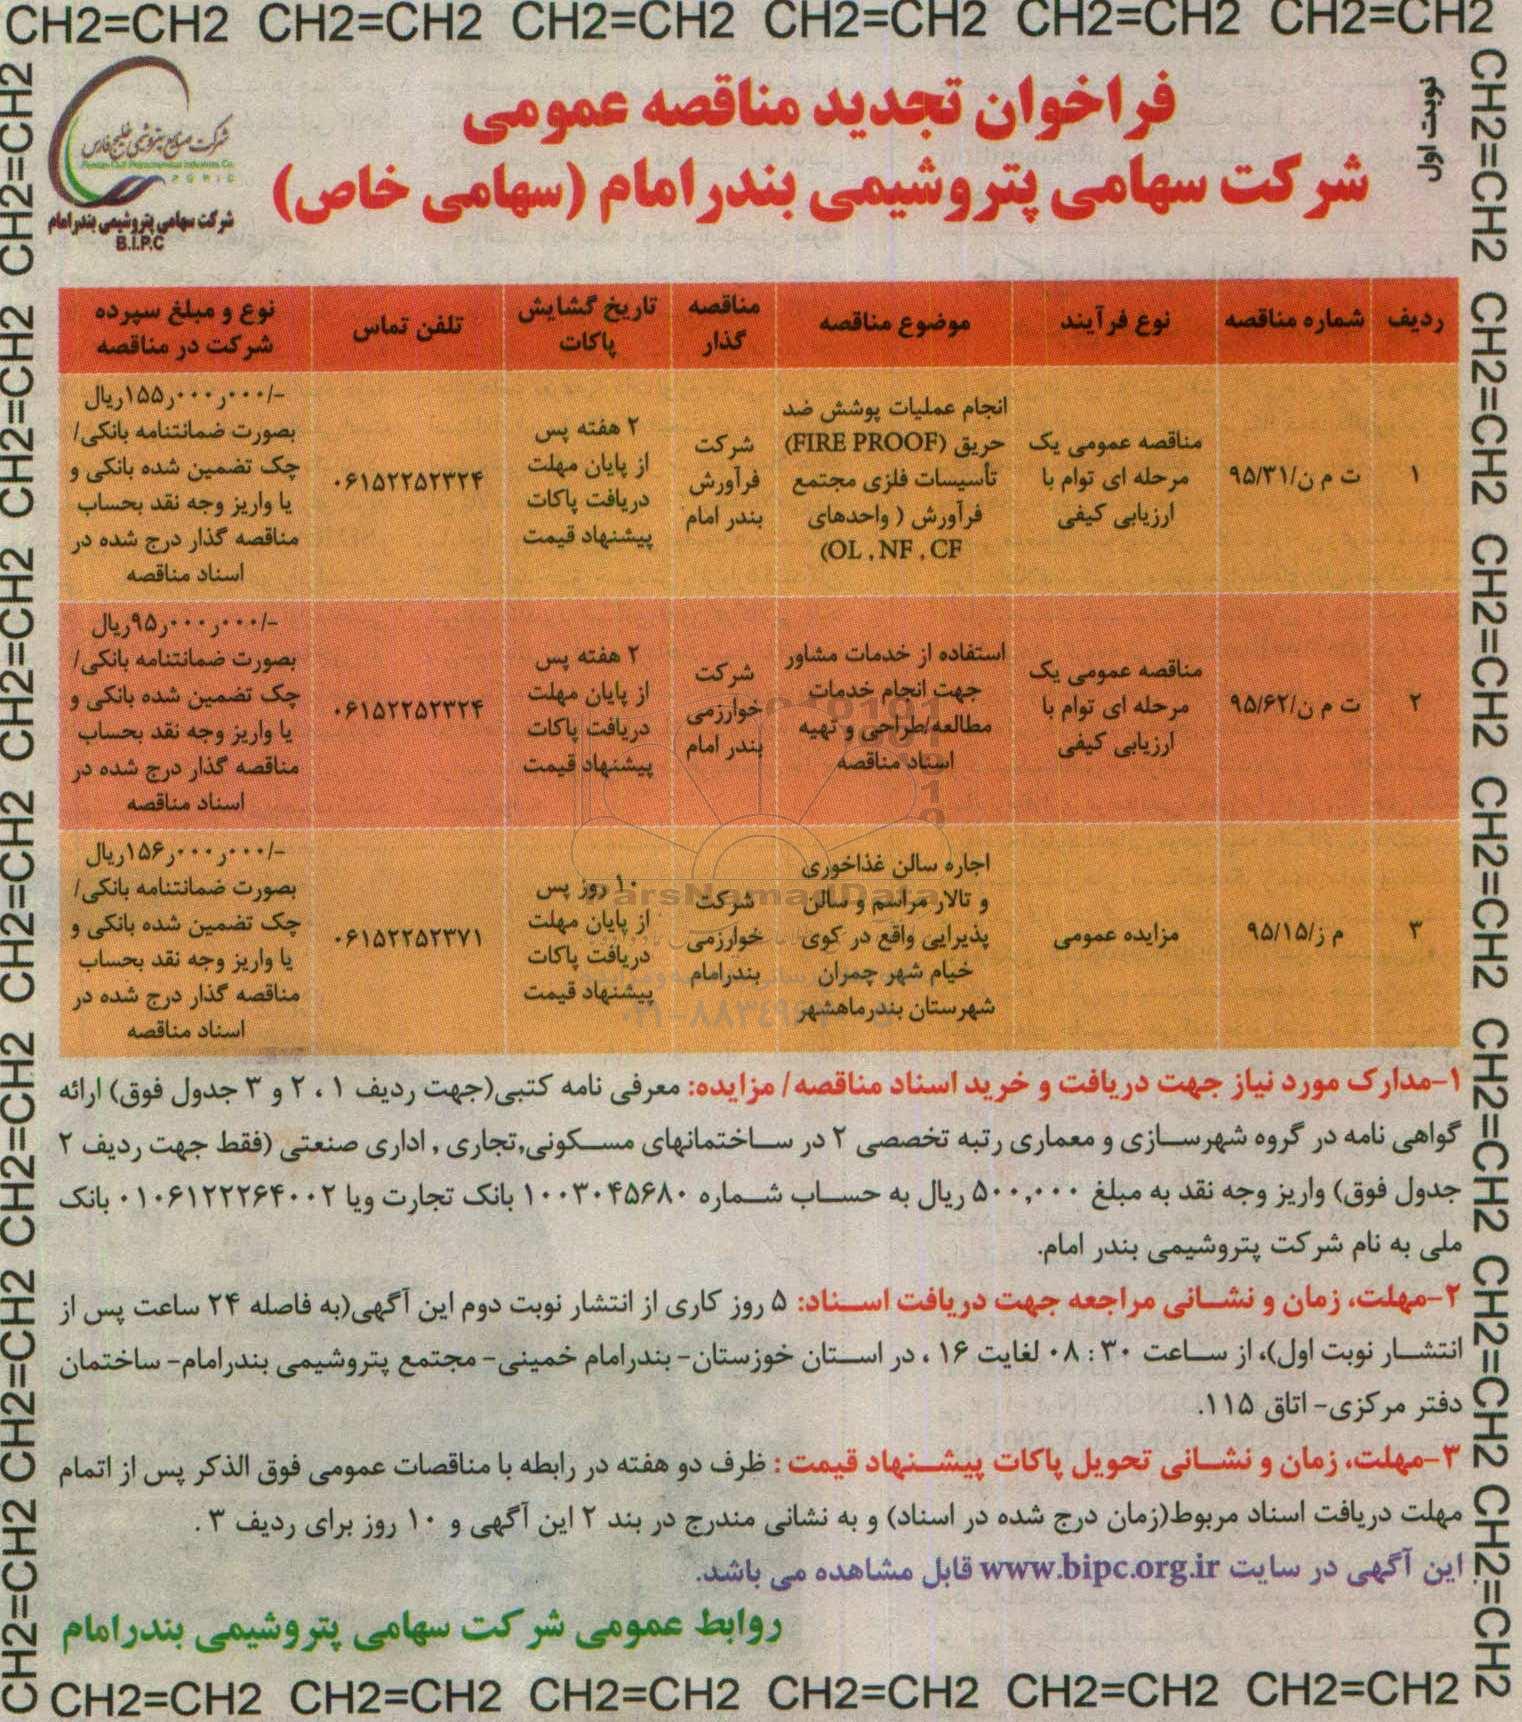 CH2=CH2 CH2=CH2 CH2=CH2 CH2=CH2 CH2=CH2 CH2=CH2
نوبت اول
فراخوان تجدید مناقصه عمومی
شرکت سهامی پتروشیمی بندرامام (سهامی خاص)
شرکت صنایع پتروشیمی خلیج فارس
Persian Gulf Petrochemical Industries Co.
P G P I C
شرکت سهامی پتروشیمی بندرامام
B.I.P.C
ردیف
شماره مناقصه
نوع فرآیند
موضوع مناقصه
مناقصه
گذار
تاریخ گشایش
پاکات
تلفن تماس
نوع و مبلغ سپرده
شرکت در مناقصه
۱
ت م ن/۹۵/۳۱
مناقصه عمومی یک
مرحله ای توام با
ارزیابی کیفی
انجام عملیات پوشش ضد
حریق (FIRE PROOF)
تأسیسات فلزی مجتمع
فرآورش ( واحدهای
OL , NF , CF)
شرکت
فرآورش
بندر امام
۲ هفته پس
از پایان مهلت
دریافت پاکات
پیشنهاد قیمت
۰۶۱۵۲۲۵۲۳۲۴
-/۱۵۵ر۰۰۰ر۰۰۰ریال
بصورت ضمانتنامه بانکی/
چک تضمین شده بانکی و
یا واریز وجه نقد بحساب
مناقصه گذار درج شده در
اسناد مناقصه
۲
ت م ن/۹۵/۶۲
مناقصه عمومی یک
مرحله ای توام با
ارزیابی کیفی
استفاده از خدمات مشاور
جهت انجام خدمات
مطالعه/طراحی و تهیه
اسناد مناقصه
شرکت
خوارزمی
بندر امام
۲ هفته پس
از پایان مهلت
دریافت پاکات
پیشنهاد قیمت
۰۶۱۵۲۲۵۲۳۲۴
-/۹۵ر۰۰۰ر۰۰۰ریال
بصورت ضمانتنامه بانکی/
چک تضمین شده بانکی و
یا واریز وجه نقد بحساب
مناقصه گذار درج شده در
اسناد مناقصه
۳
م ز/۹۵/۱۵
مزایده عمومی
اجاره سالن غذاخوری
و تالار مراسم و سالن
پذیرایی واقع در کوی
خیام شهر چمران
شهرستان بندرماهشهر
شرکت
خوارزمی
بندرامام
۱۰ روز پس
از پایان مهلت
دریافت پاکات
پیشنهاد قیمت
۰۶۱۵۲۲۵۲۳۷۱
-/۱۵۶ر۰۰۰ر۰۰۰ریال
بصورت ضمانتنامه بانکی/
چک تضمین شده بانکی و
یا واریز وجه نقد بحساب
مناقصه گذار درج شده در
اسناد مناقصه
ParsNamadData
۱-مدارک مورد نیاز جهت دریافت و خرید اسناد مناقصه/ مزایده: معرفی نامه کتبی(جهت ردیف ۱ ، ۲ و ۳ جدول فوق) ارائه
گواهی نامه در گروه شهرسازی و معماری رتبه تخصصی ۲ در ساختمانهای مسکونی,تجاری , اداری صنعتی (فقط جهت ردیف ۲
جدول فوق) واریز وجه نقد به مبلغ ۵۰۰,۰۰۰ ریال به حساب شماره ۱۰۰۳۰۴۵۶۸۰ بانک تجارت ویا ۰۱۰۶۱۲۲۲۶۴۰۰۲ بانک
ملی به نام شرکت پتروشیمی بندر امام.
۲-مهلت، زمان و نشانی مراجعه جهت دریافت اسناد: ۵ روز کاری از انتشار نوبت دوم این آگهی(به فاصله ۲۴ ساعت پس از
انتشار نوبت اول)، از ساعت ۳۰ : ۰۸ لغایت ۱۶ ، در استان خوزستان- بندرامام خمینی- مجتمع پتروشیمی بندرامام- ساختمان
دفتر مرکزی- اتاق ۱۱۵.
۳-مهلت، زمان و نشانی تحویل پاکات پیشنهاد قیمت : ظرف دو هفته در رابطه با مناقصات عمومی فوق الذکر پس از اتمام
مهلت دریافت اسناد مربوط(زمان درج شده در اسناد) و به نشانی مندرج در بند ۲ این آگهی و ۱۰ روز برای ردیف ۳ .
این آگهی در سایت www.bipc.org.ir قابل مشاهده می باشد.
روابط عمومی شرکت سهامی پتروشیمی بندرامام
CH2=CH2 CH2=CH2 CH2=CH2 CH2=CH2 CH2=CH2 CH2=CH2
CH2=CH2 CH2=CH2 CH2=CH2 CH2=CH2 CH2=CH2 CH2=CH2 CH2=CH2
CH2=CH2 CH2=CH2 CH2=CH2 CH2=CH2 CH2=CH2 CH2=CH2 CH2=CH2